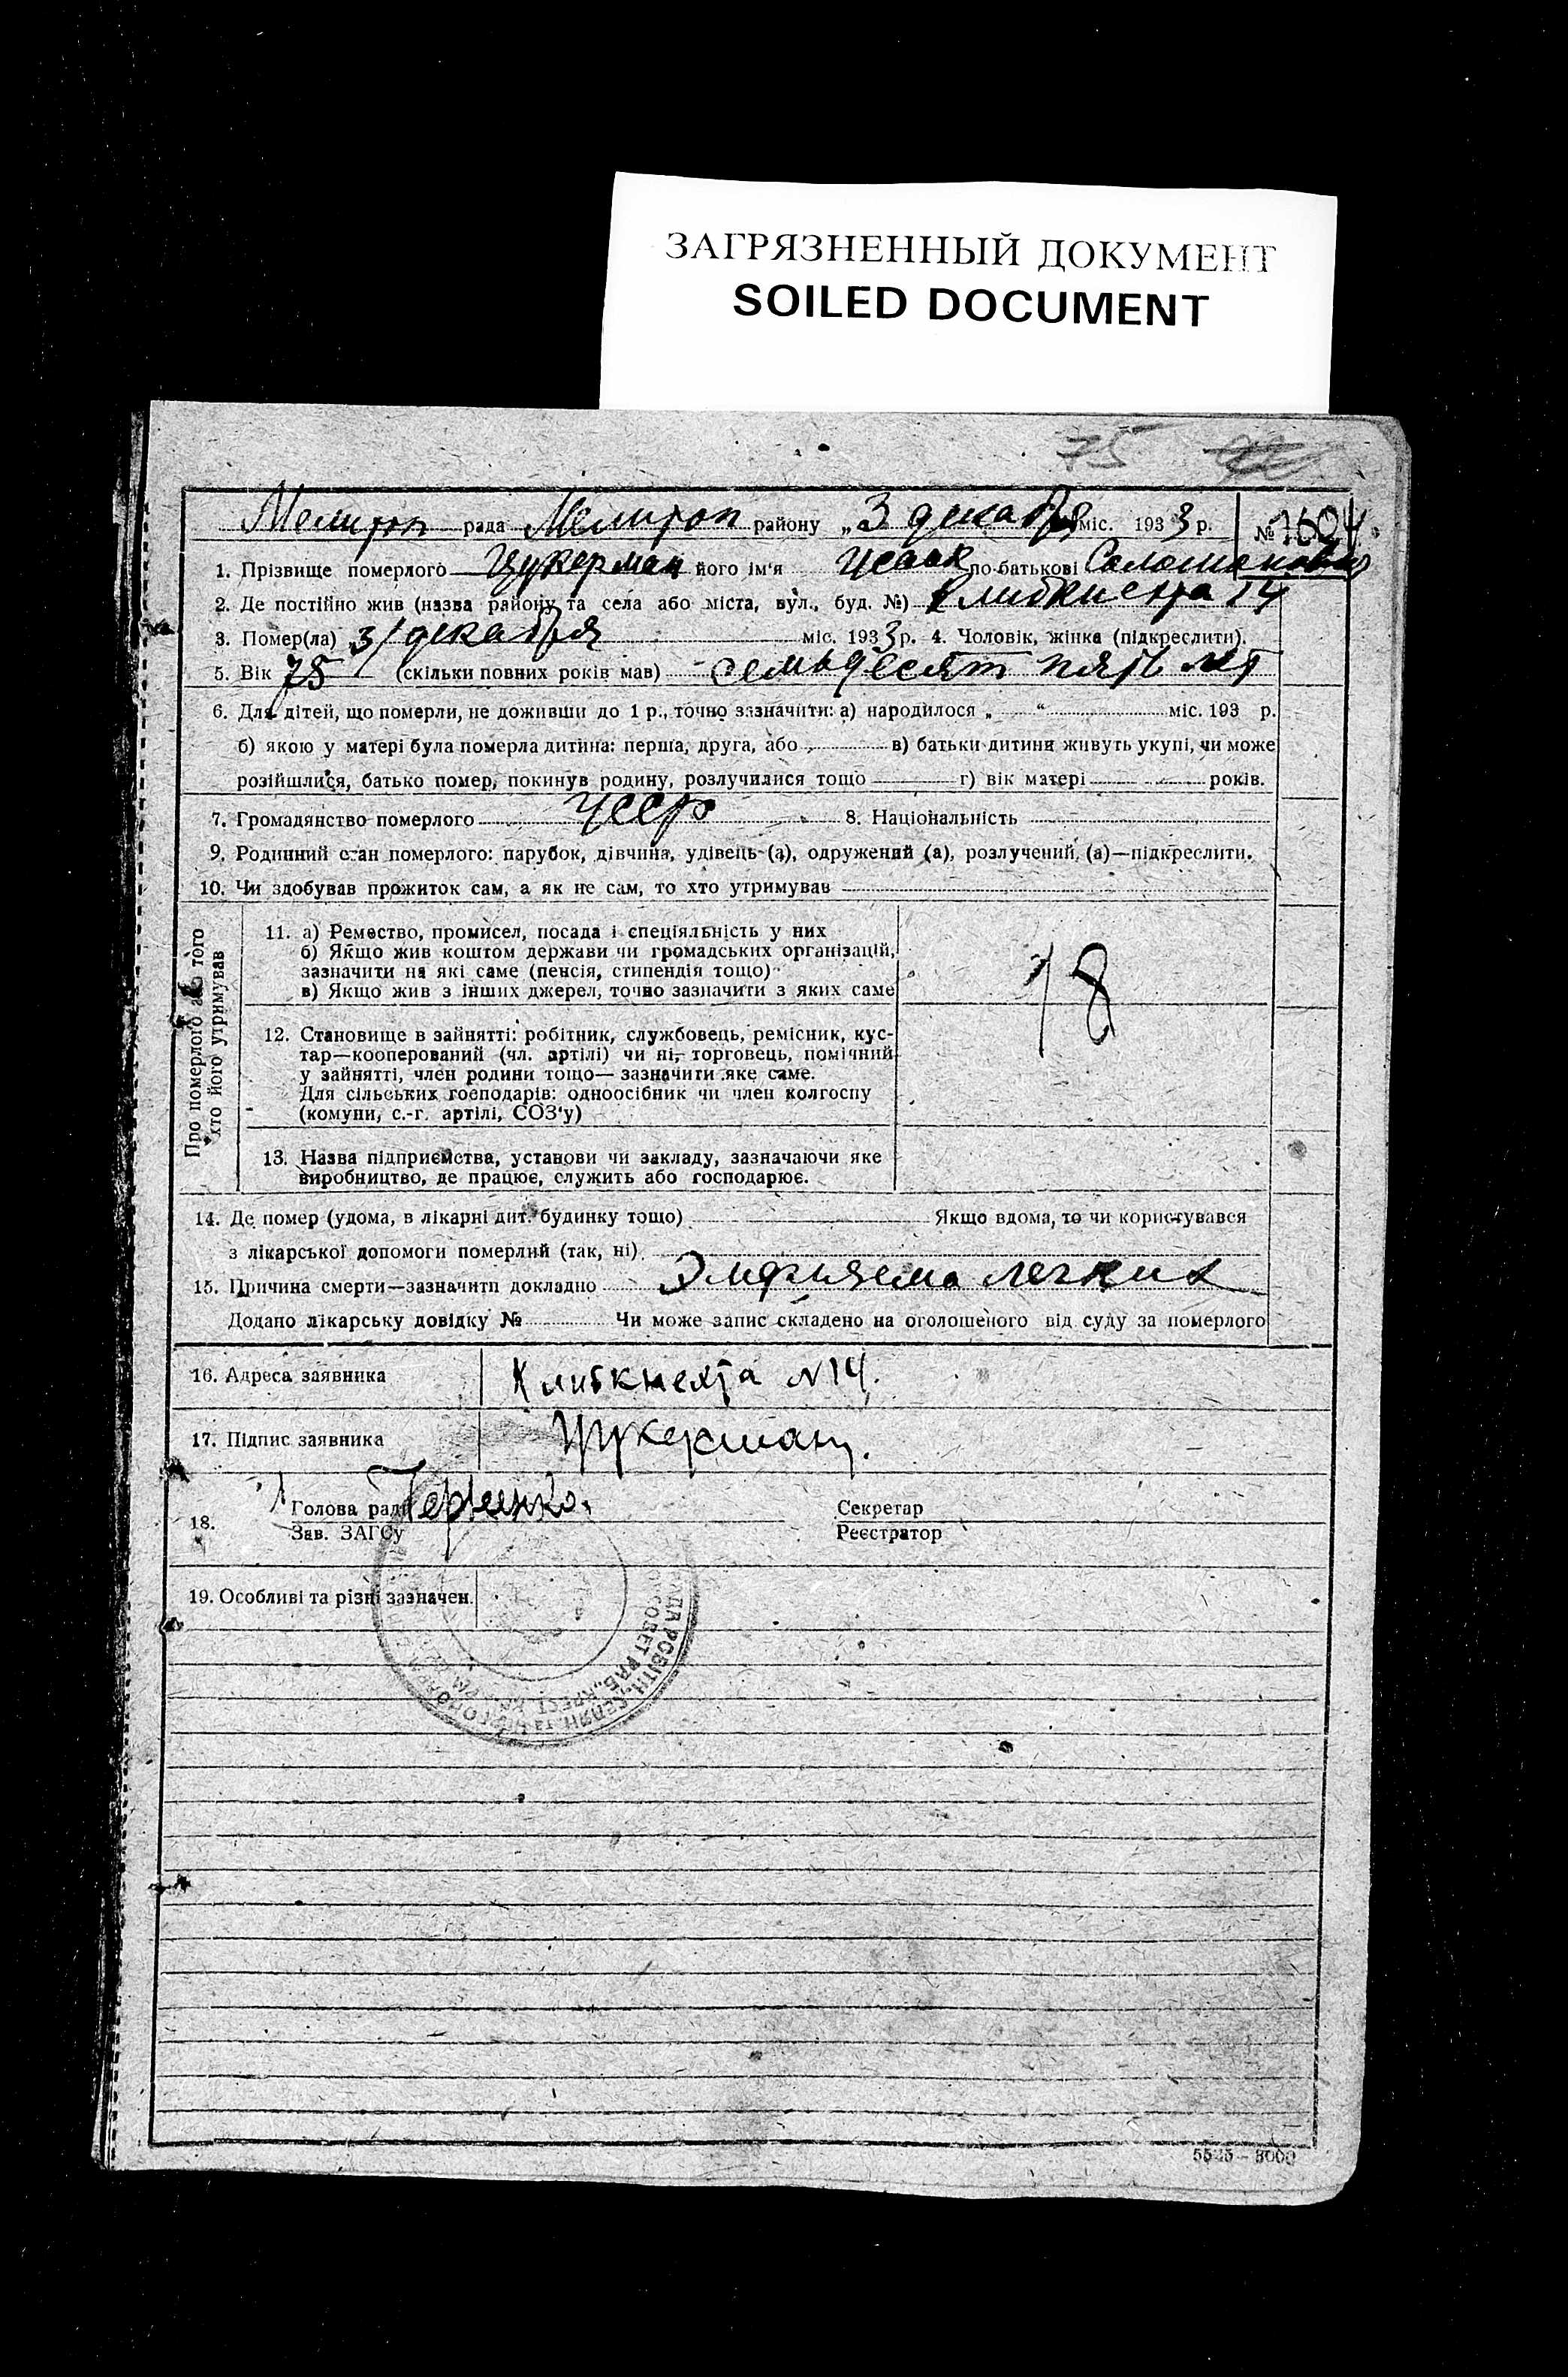 ЗАГРЯЗНЕННЫЙ ДОКУМЕНТ
SOILED DOCUMENT
75
Мелитоп рада Мелитоп району „3 декабря міс. 1933 р. № 1604
1. Прізвище померлого Цукерман його ім'я Исаак по батькові Соломонович
2. Де постійно жив (назва району та села або міста, вул., буд. №) К Либкнехта 14
3. Помер(ла) 3/декабря міс. 1933 р. 4. Чоловік, жінка (підкреслити).
5. Вік 75 (скільки повних років мав) семьдесят пять лет
6. Для дітей, що померли, не доживши до 1 р., точно зазначити: а) народилося „ “ міс. 193 р.
б) якою у матері була померла дитина: перша, друга, або в) батьки дитини живуть укупі, чи може
розійшлися, батько помер, покинув родину, розлучилися тощо г) вік матері років.
7. Громадянство померлого УССР 8. Національність
9. Родинний стан померлого: парубок, дівчина, удівець (а), одружений (а), розлучений (а)—підкреслити.
10. Чи здобував прожиток сам, а як не сам, то хто утримував
Про померлого або того
хто його утримував
11. а) Ремество, промисел, посада і спеціяльність у них
б) Якщо жив коштом держави чи громадських організацій,
зазначити на які саме (пенсія, стипендія тощо)
в) Якщо жив з інших джерел, точно зазначити з яких саме
18
12. Становище в зайнятті: робітник, службовець, ремісник, кус-
тар—кооперований (чл. артілі) чи ні, торговець, помічний
у зайнятті, член родини тощо— зазначити яке саме.
Для сільських господарів: одноосібник чи член колгоспу
(комуни, с.-г. артілі, СОЗ'у)
13. Назва підприємства, установи чи закладу, зазначаючи яке
виробництво, де працює, служить або господарює.
14. Де помер (удома, в лікарні дит. будинку тощо) Якщо вдома, то чи користувався
з лікарської допомоги померлий (так, ні)
15. Причина смерти—зазначити докладно Эмфизема легких
Додано лікарську довідку № Чи може запис складено на оголошеного від суду за померлого
16. Адреса заявника К либкнехта N 14.
17. Підпис заявника Цукерман.
18. Голова ради Секретар
Зав. ЗАГСу Реєстратор
19. Особливі та різні зазначен.
РАДА РОБІТН., СЕЛЯН. та
СОВЕТ РАБ., КРЕСТ.
5525 – 3000